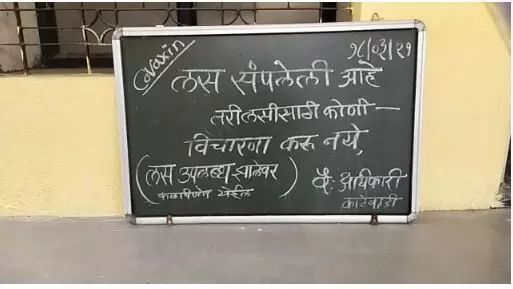 Covaxin
१८/०३/२१
लस संपलेली आहे
तरी लसीसाठी कोणी —
विचारणा करू नये,
(लस उपलब्ध झालेवर
कळविणेत येईल)
वै. अधिकारी
काटेवाडी